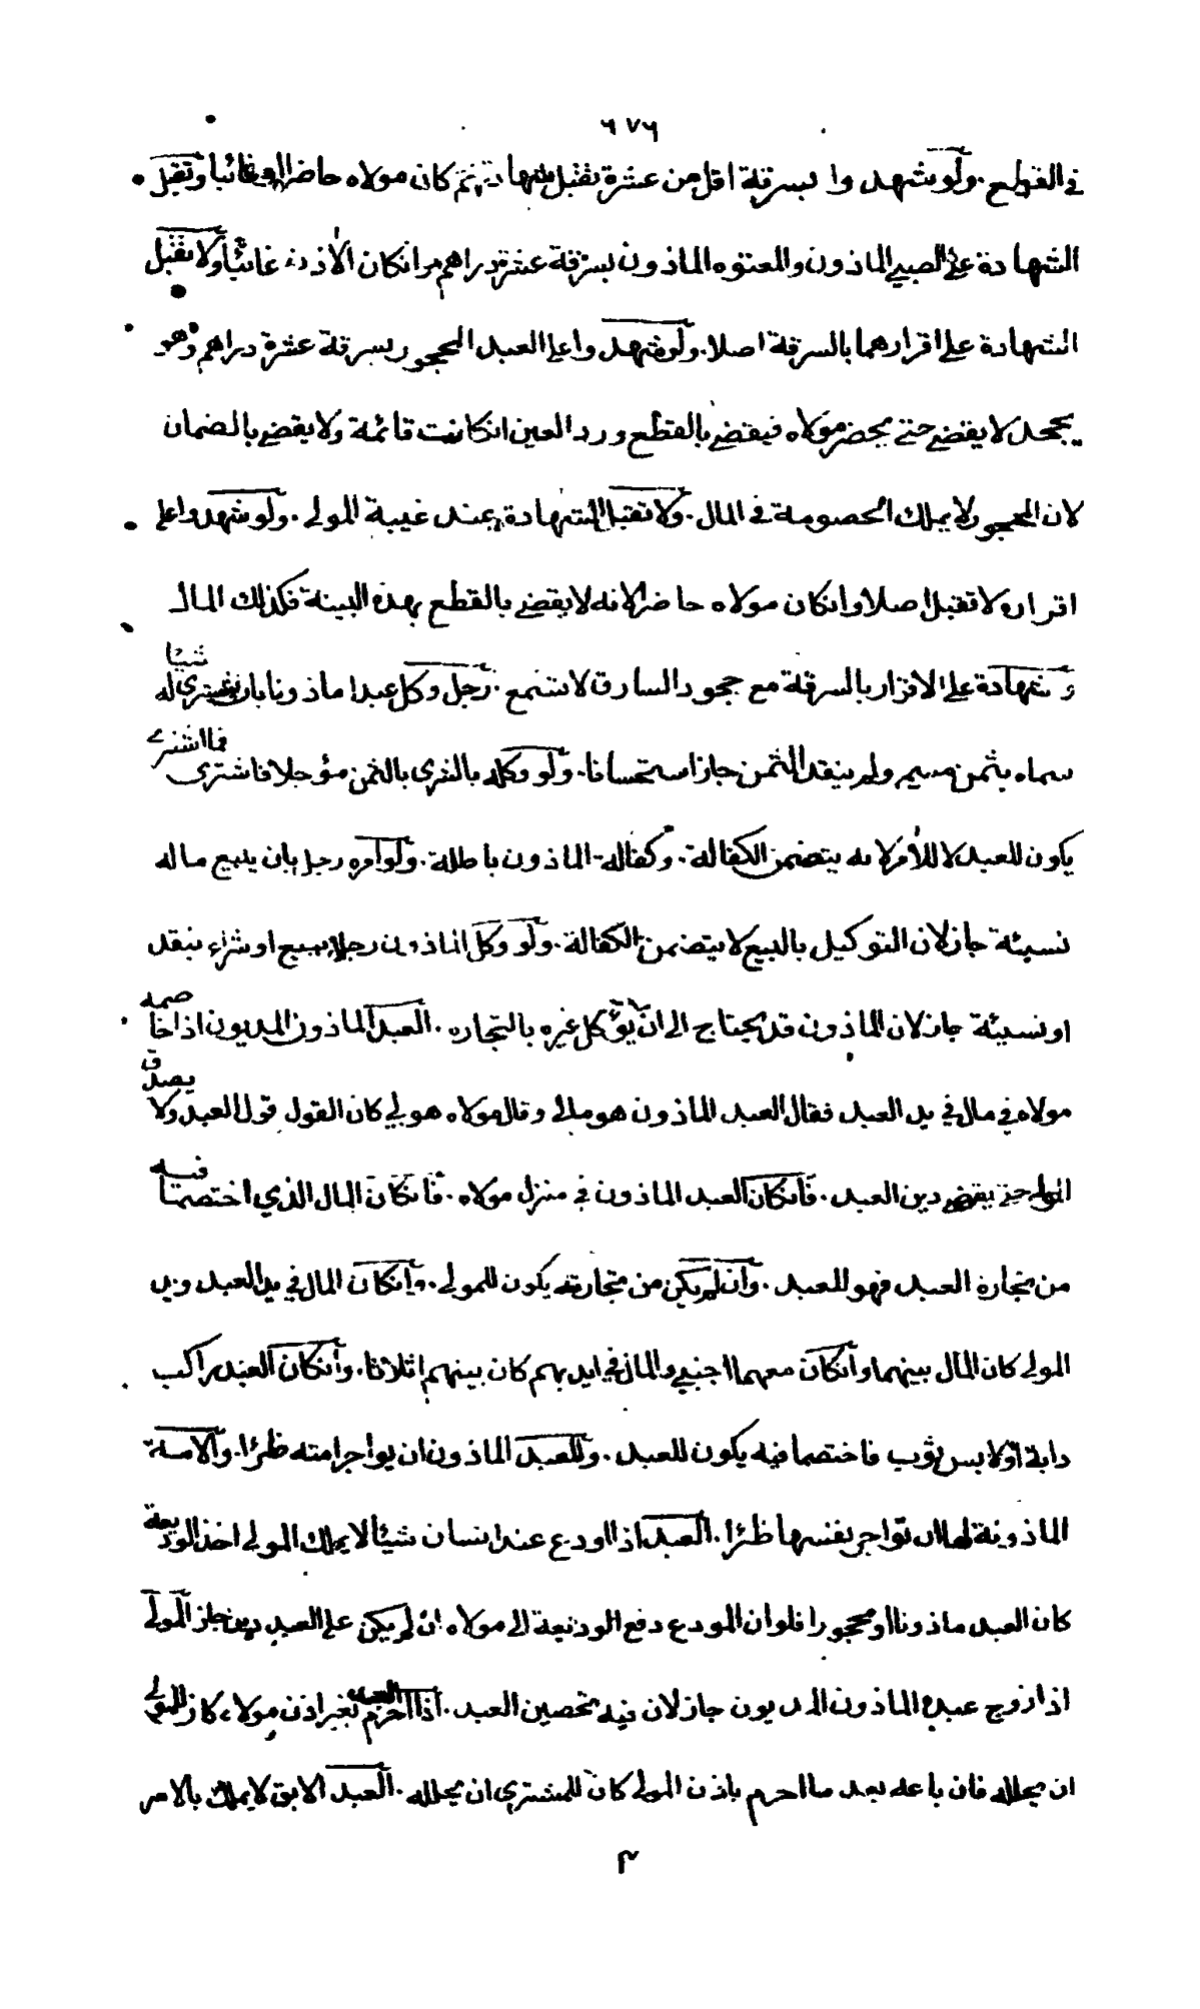 ٦٧٦
في القطع . ولو شهدوا بسرقة اقل من عشرة تقبل شهادتهم كان مولاه حاضرا او غائبا وتقبل
الشهادة على الصبي الماذون والمعتوه الماذون بسرقة عشرة دراهم وانكان الآذن غائبا ولا تقبل
الشهادة على اقرارهما بالسرقة اصلا . ولو شهدوا على العبد المحجور بسرقة عشرة دراهم وهو
يجحد لا يقضي حتى يحضر مولاه فيقضي بالقطع ورد العين انكانت قائمة ولا يقضي بالضمان
لان المحجور لا يملك الخصومة في المال . ولا تقبل الشهادة عند غيبة المولى . ولو شهدوا على
اقراره لا تقبل اصلا وانكان مولاه حاضرا لانه لا يقضي بالقطع بهذه البينة فكذلك المال
وشهادة على الاقرار بالسرقة مع جحود السارق لا تسمع . رجل وكل عبدا ماذونا بان يشتري له شيئا
سماه بثمن مسمى ولم ينقد الثمن جاز استحسانا . ولو وكله بالشرى بالثمن مؤجلا فاشترى فما اشترى
يكون للعبد لا للآمر لانه يتضمن الكفالة . وكفالة الماذون باطلة . ولو امره رجل بان يبيع ماله
نسيئة جاز لان التوكيل بالبيع لا يتضمن الكفالة . ولو وكل الماذون رجلا ببيع او شراء بنقد
او نسيئة جاز لان الماذون قد يحتاج الى ان يوكل غيره بالتجارة . العبد الماذون المديون اذا خاصمه
مولاه في مال في يد العبد فقال العبد الماذون هو مالي وقال مولاه هو لي كان القول قول العبد ولا يصدق
المولى حتى يقضي دين العبد . فانكان العبد الماذون في منزل مولاه . فانكان المال الذي اختصما فيه
من تجارة العبد فهو للعبد . وان لم يكن من تجارته يكون للمولى . وانكان المال في يد العبد ويد
المولى كان المال بينهما وانكان معهما اجنبي والمال في ايديهم كان بينهم اثلاثا . وانكان العبد راكب
دابة او لابس ثوب فاختصما فيه يكون للعبد . وللعبد الماذون ان يواجر امته ظئرا . والامة
الماذونة لها ان تواجر نفسها ظئرا . العبد اذا اودع عند انسان شيئا لا يملك المولى اخذ الوديعة
كان العبد ماذونا او محجورا فلو ان المودع دفع الوديعة الى مولاه ان لم يكن على العبد دين جاز المولى
اذا زوج عبده الماذون المديون جاز لان فيه تحصين العبد . اذا احرم العبد بغير اذن مولاه كان للمولى
ان يحلله فان باعه بعد ما احرم باذن المولى كان للمشتري ان يحلله . العبد الابق لا يملك بالامر